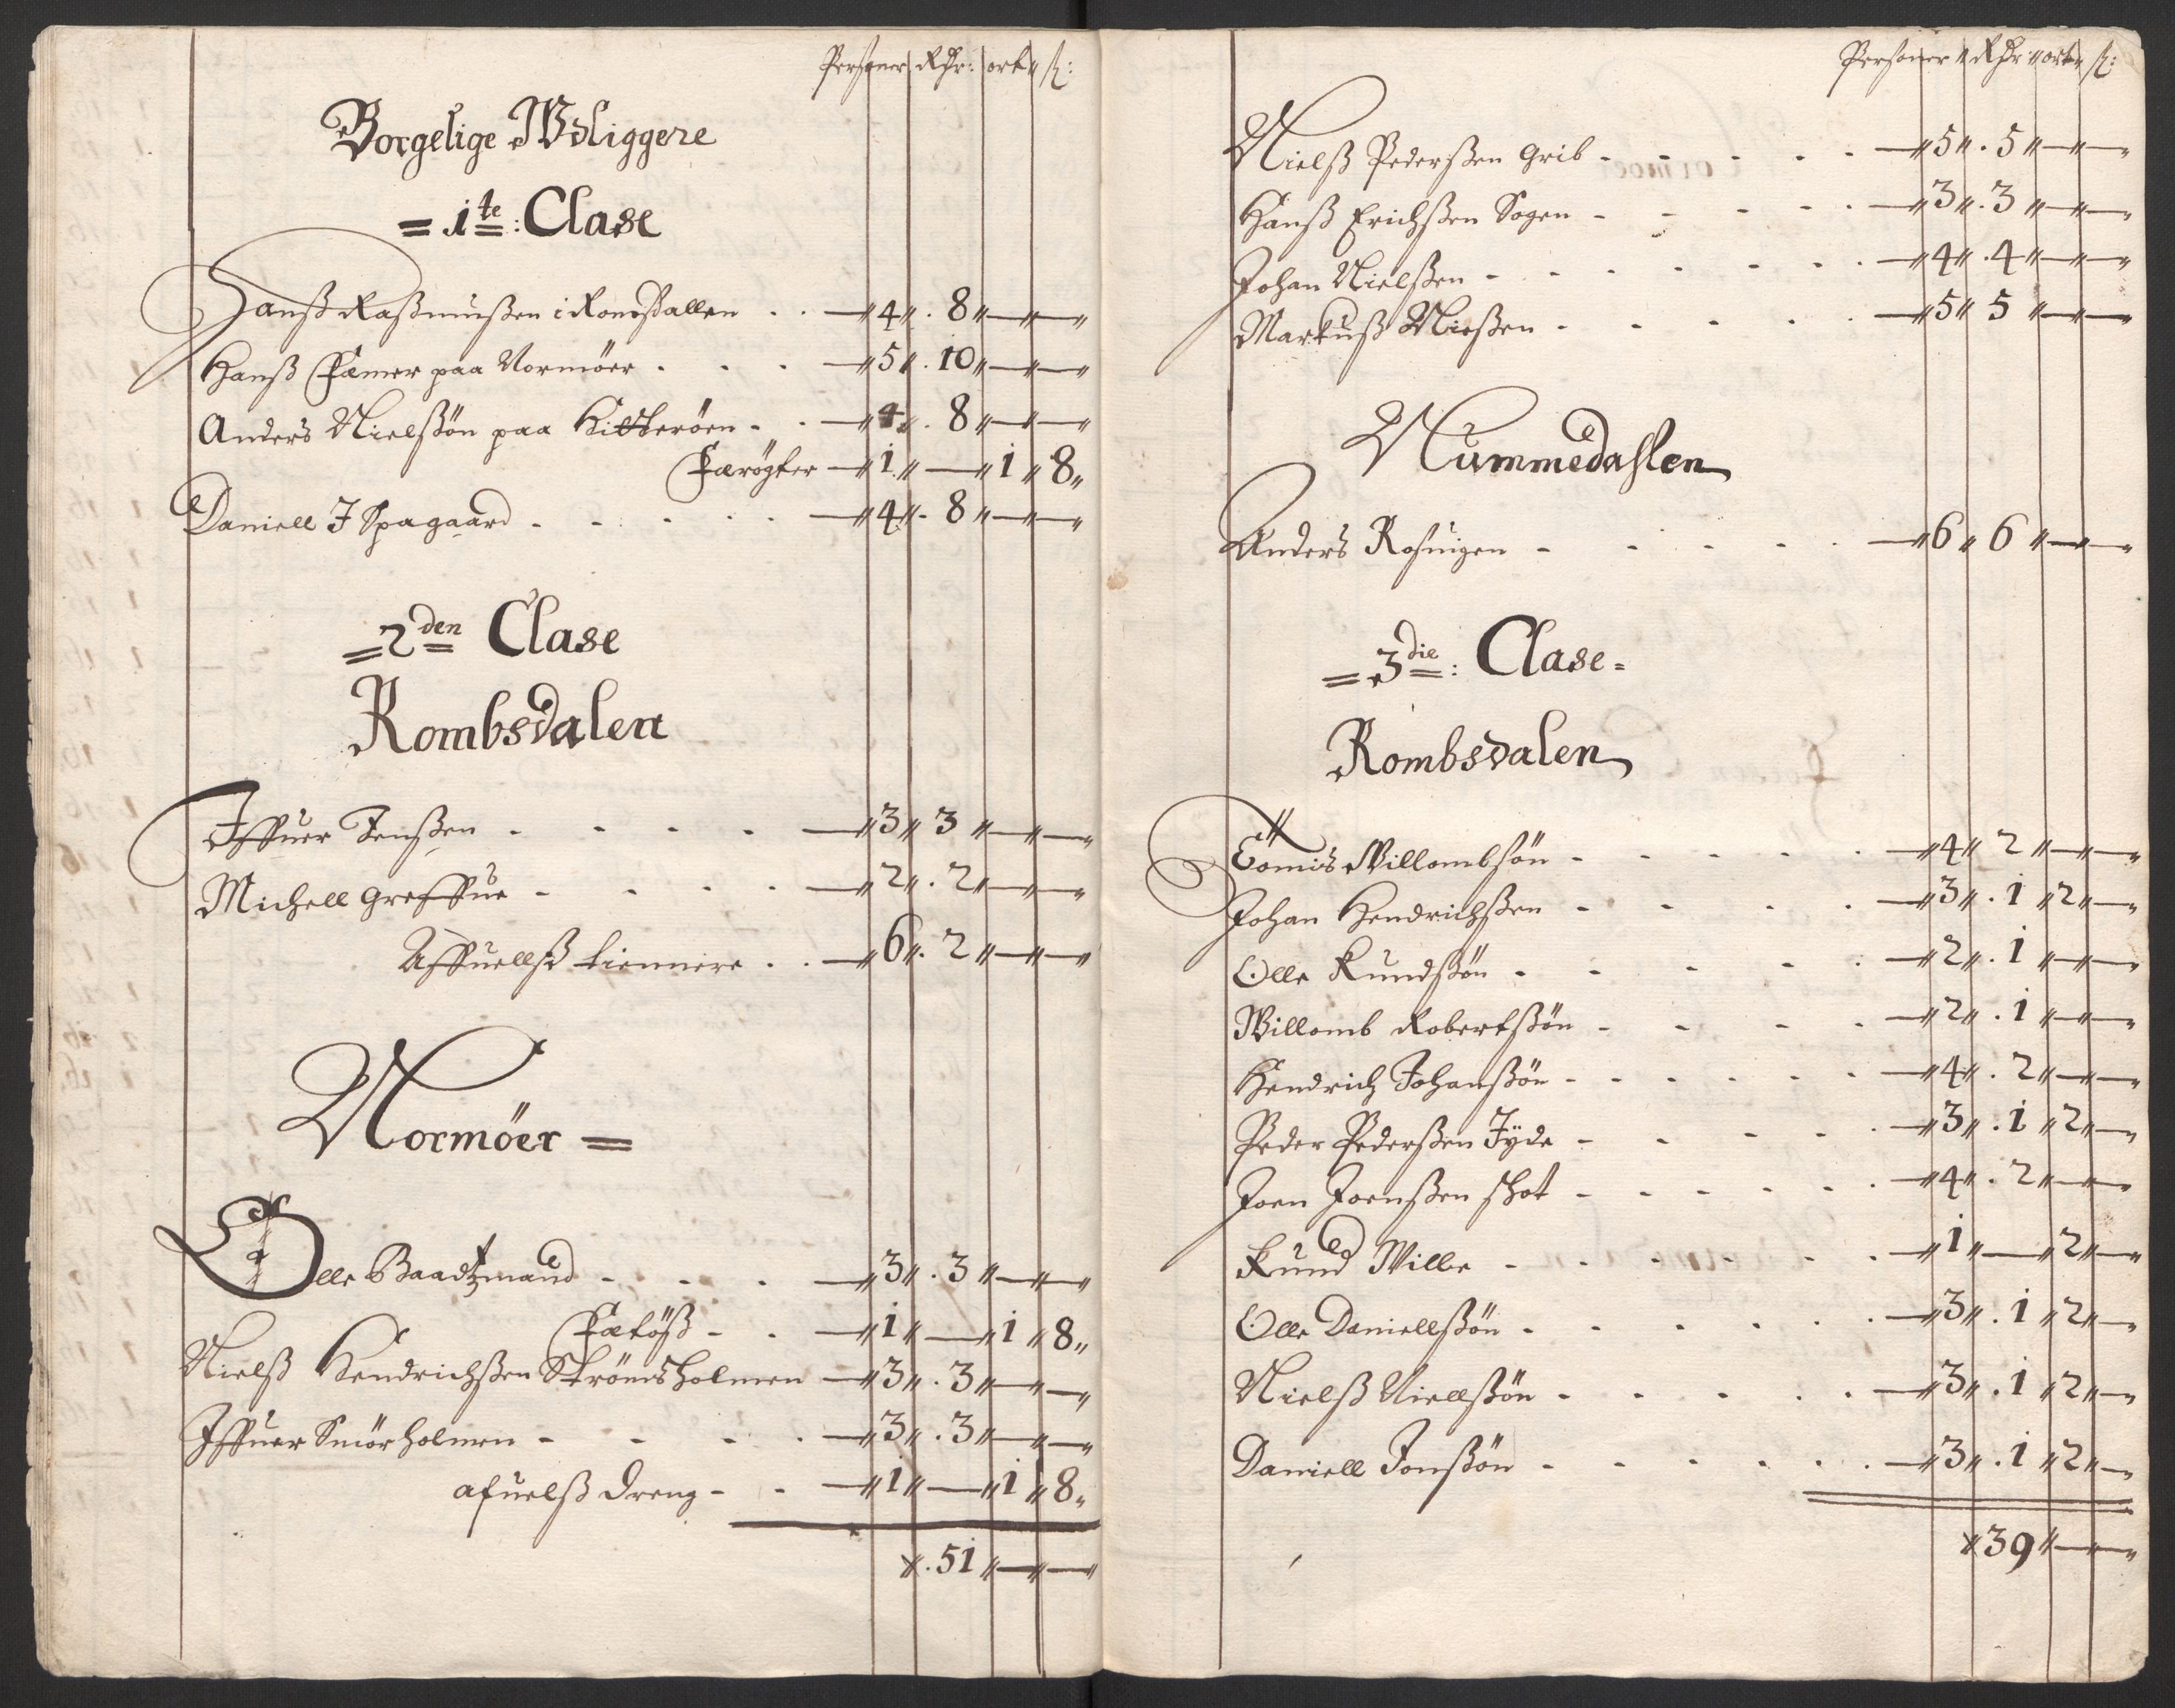 Personer Rdr: ort sk:
Borgelige Udliggere
= 1te: Clase
Hanß Raßmußen i Romsdallen . . 4 . 8
Hanß Fæmer paa Normöer . . . 5 . 10
Anders Nielßön paa Hitteröen - . 4 . 8
1 1 8
Daniell J Spagaard . - . . . 4 - 8
= 2den Clase
Rombsdalen
Iffuer Jenßen . - - - - 3 3
Michell Greffue - . . . 2 . 2
Affuellß tiennere . . 6 . 2
Normöer =
Olle Baadtzmand - - - . 3 . 3
- . 1 1 8
Nielß Hendrichßen Strömsholmen 3 . 3
Iffuer Smörholmen - - - . 3 . 3
afuelß dreng - . 1 1 8
51
Personer Rdr ort sk:
Nielß Pederßen Grib - - - . . 5 . 5
Hanß Erichßen Sogen - - - . . 3 . 3
Johan Nielßen - - - - - . . 4 . 4
Markuß Nießen . - . . . 5 5
Nummedahlen
Anders Rosuigen - - - - . 6 6
= 3die: Clase =
Rombsdalen
Tomis Willombsön - - - - . 4 2
Johan Hendrichßen - - . . 3 . 1 2
Olle Kundßön . - - - . 2 . 1
Willomb Robertßön - - - . 2 . 1
Hendrich Johanßön - - - - - . 4 . 2
Peder Pederßen Jyde - - - . . 3 . 1 2
Joen Joenßen skot - - - - . . 4 . 2
Kund Wille - - - - - . 1 2
Olle Daniellßön . - - - . . 3 . 1 2
Nielß Niellßön . - - . . 3 . 1 2
Daniell Jonßön - - - - . . 3 . 1 2
39